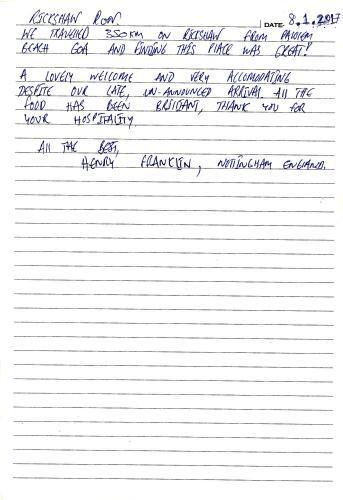 RICKSHAW RUN
DATE: 8.1.2017
WE TRAVELLED 350KM ON RICKSHAW FROM PALOLEM
BEACH GOA AND FINDING THIS PLACE WAS GREAT!
A LOVELY WELCOME AND VERY ACCOMODATING
DESPITE OUR LATE, UN-ANNOUNCED ARRIVAL. ALL THE
FOOD HAS BEEN BRILLIANT, THANK YOU FOR
YOUR HOSPITALITY
ALL THE BEST,
HENRY FRANKLIN, NOTTINGHAM ENGLAND.